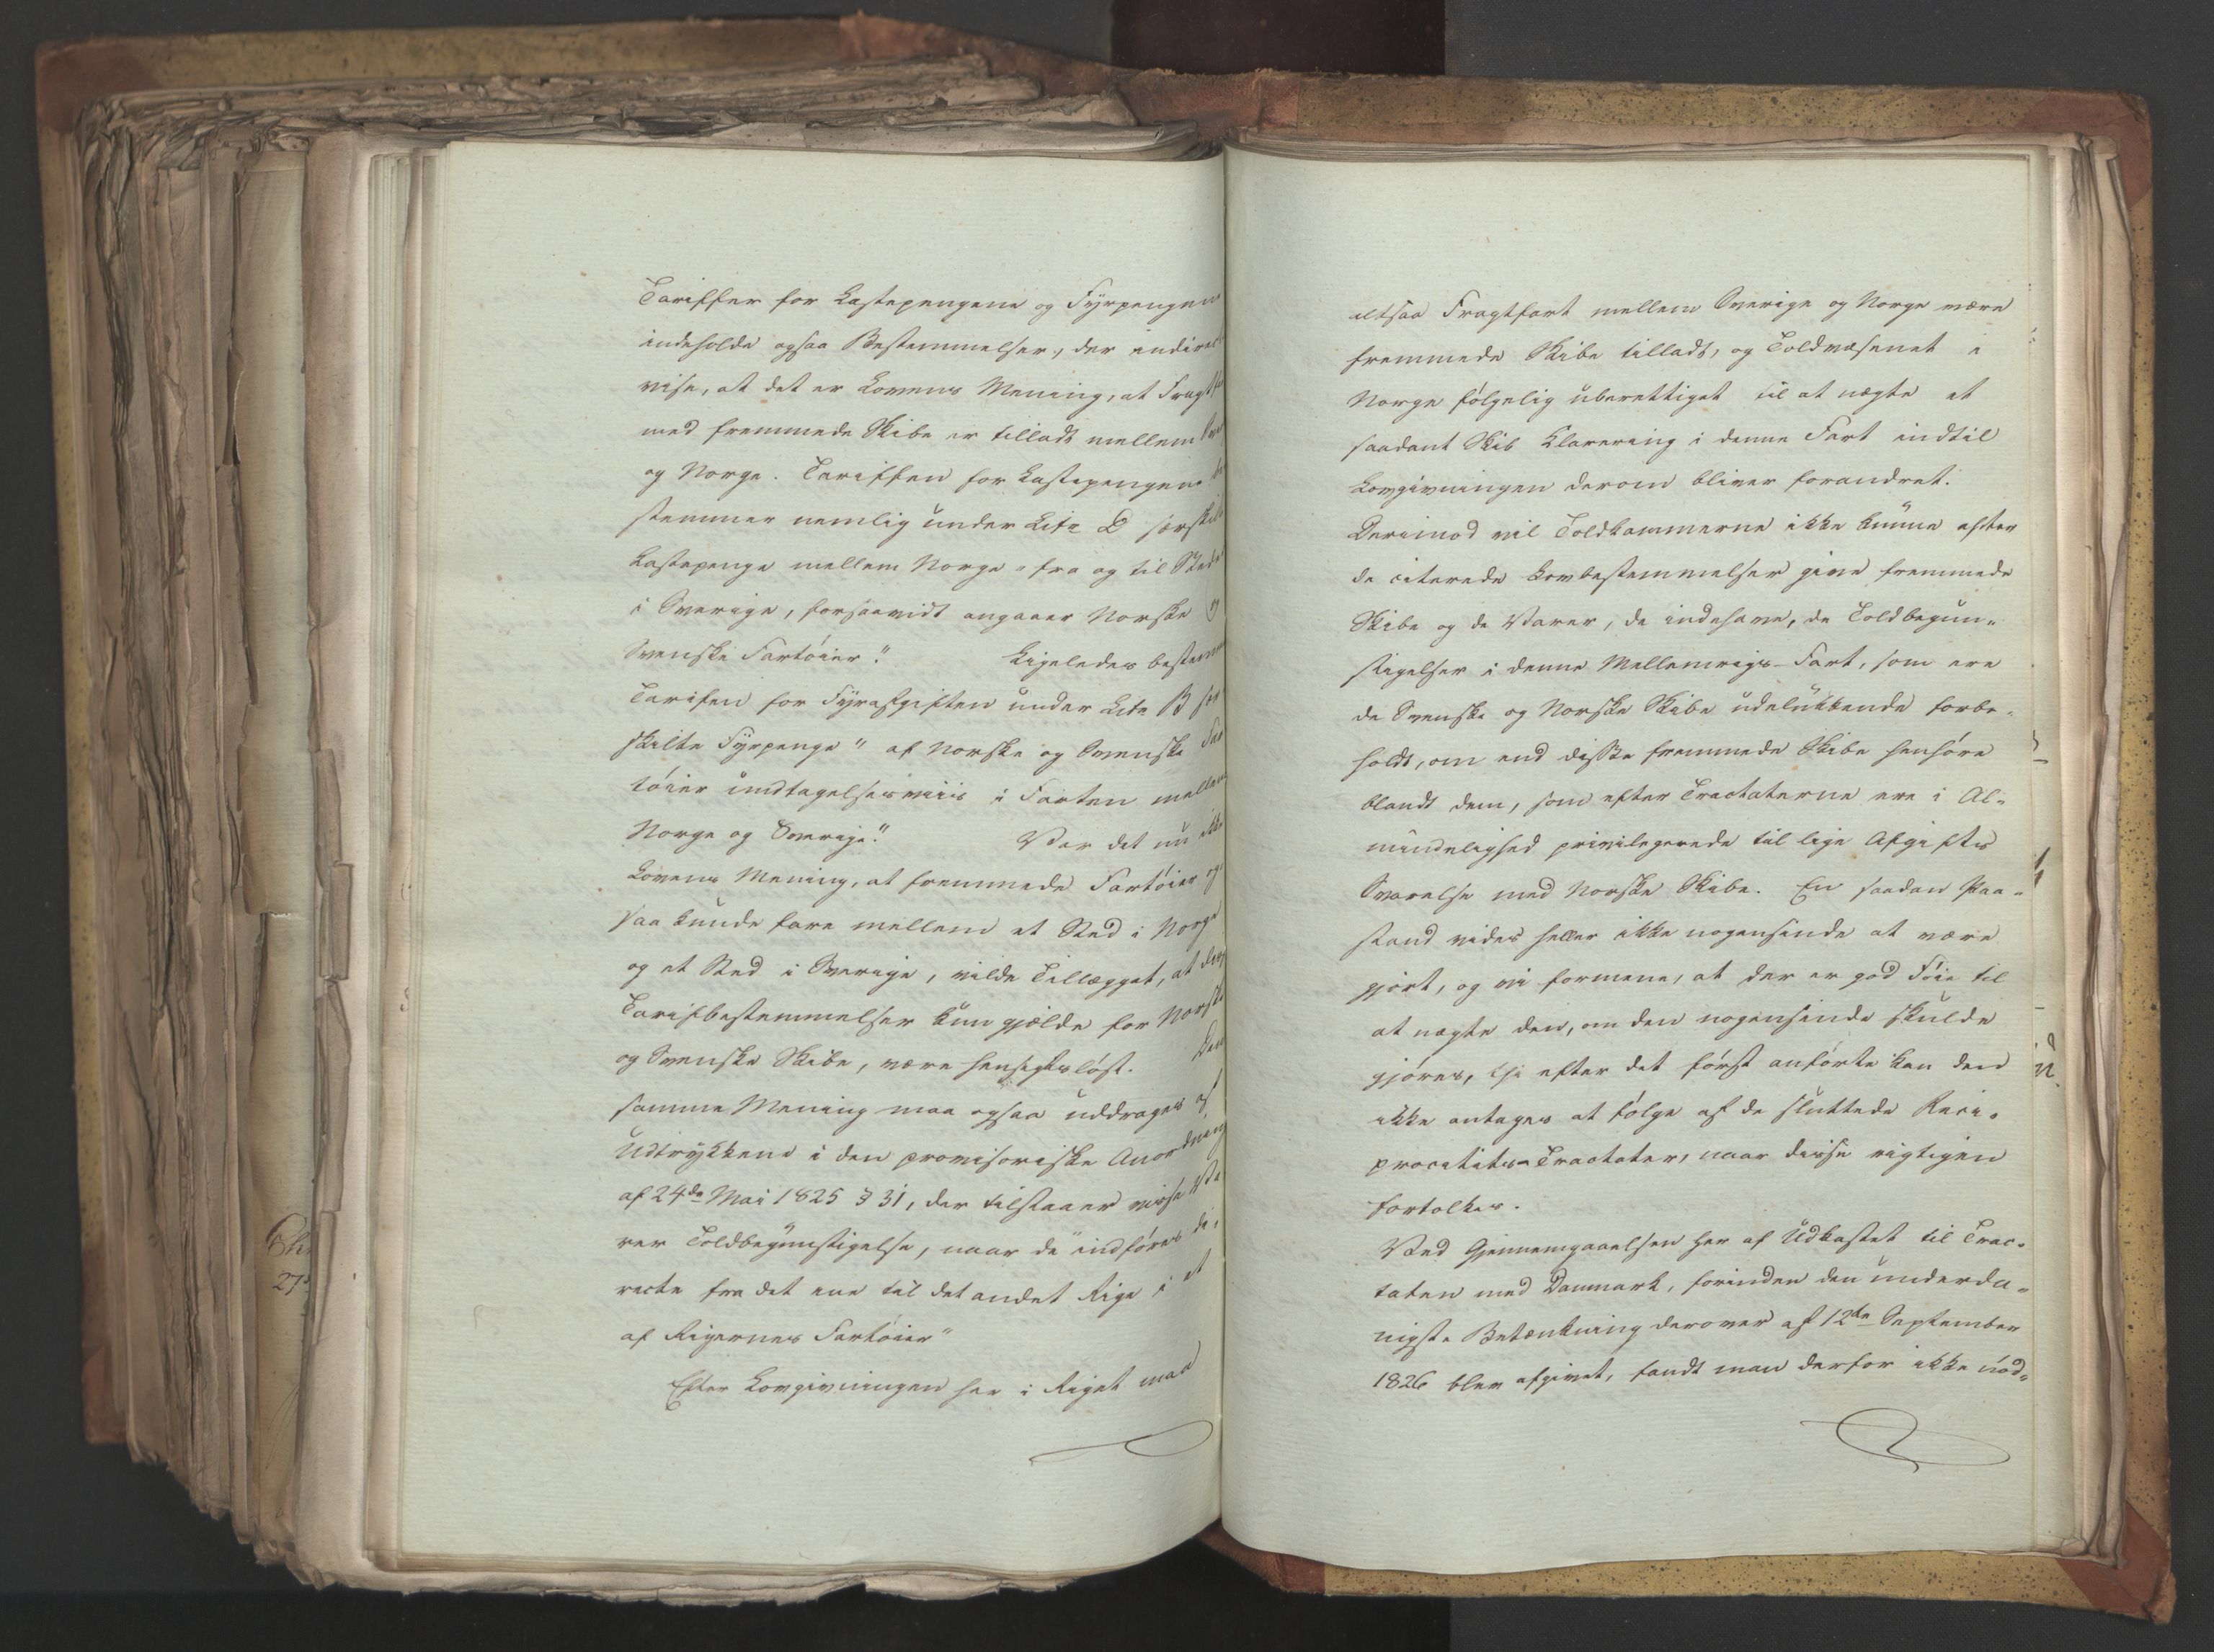 Tariffer for Lastepengene og Fyrpengene
indeholde ogsaa Bestemmelser, der indirect
vise, at det er Lovens Mening, at Fragt
med fremmede Skibe er tilladt mellem
og Norge. Tariffen for Lastepengene
stemmer nemlig under Litr D særskilt
Lastepenge mellem Norge "fra og til Steder
i Sverige, forsaavidt angaaer Norske og
Svenske Fartøier". Ligeledes bestemmer
Tarifen for Fyrafgiften under Litr B sær
skilte Fyrpenge "af Norske og Svenske Far
tøier undtagelsesviis i Farten mellem
Norge og Sverige". Var det nu ikke
Lovens Mening, at fremmede Fartøier og
saa kunde fare mellem et Sted i Norge
og et Sted i Sverige, vilde Tillægget, at disse
Tarifbestemmelser kun gjælde for Norske
og Svenske Skibe, være hensigtsløst. Den
samme Mening maa ogsaa uddrages af
Udtrykkene i den provisoriske Anordning
af 24de Mai 1825 § 31, der tilstaaer visse Va
rer Toldbegunstigelse, naar de "indføres di-
recte fra det ene til det andet Rige i et
af Rigernes Fartøier"
Efter Lovgivningen her i Riget maa
altsaa Fragtfart mellem Sverige og Norge være
fremmede Skibe tilladt, og Toldvæsenet i
Norge følgelig uberettiget til at nægte et
saadant Skib Klarering i denne Fart indtil
Lovgivningen derom bliver forandret.
Derimod vil Toldkammerne ikke kunne efter
de citerede Lovbestemmelser give fremmede
Skibe og de Varer, de indehave, de Toldbegun-
stigelser i denne Mellemrigs-Fart, som ere
de Svenske og Norske Skibe udelukkende forbe-
holdt, om end disse fremmede Skibe henhøre
blandt dem, som efter Tractaterne ere i Al-
mindelighed privilegerede til lige Afgifts
Svarelse med Norske Skibe. En saadan Paa-
stand vides heller ikke nogensinde at være
gjort, og vi formene, at der er god Føie til
at nægte den, om den nogensinde skulde
gjøres, thi efter det først anførte kan den
ikke antages at følge af de sluttede Reci-
procitets-Tractater, naar disse rigtigen
fortolkes.
Ved Gjennemgaaelsen her af Udkastet til Trac-
taten med Danmark, forinden den underda-
nigste Betænkning derover af 12te September
1826 blev afgivet, fandt man derfor ikke nød-